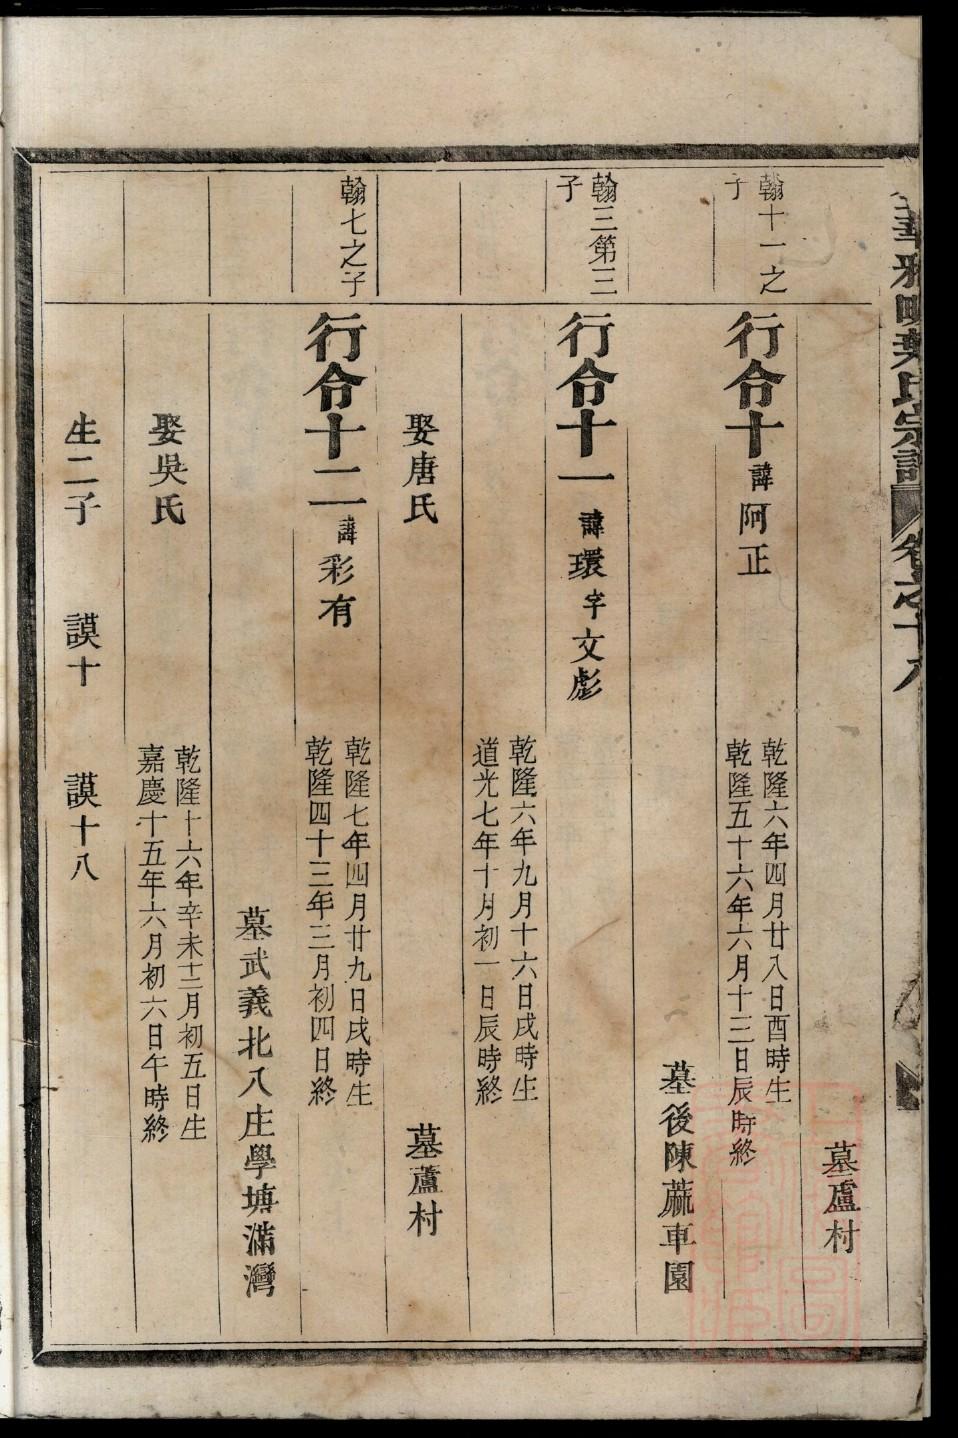 華雅畈葉氏宗譜
卷之十八
墓蘆村
翰十一之
子
行令十 諱阿正
乾隆六年四月廿八日酉時生
乾隆五十六年六月十三日辰時終
墓後陳蔴車園
翰三第三
子
行令十一 諱環字文彪
乾隆六年九月十六日戌時生
道光七年十月初一日辰時終
娶唐氏
墓蘆村
翰七之子
行令十二 諱彩有
乾隆七年四月廿九日戌時生
乾隆四十三年三月初四日終
墓武義北八庄學塘滿灣
娶吳氏
乾隆十六年辛未十二月初五日生
嘉慶十五年六月初六日午時終
生二子 謨十 謨十八